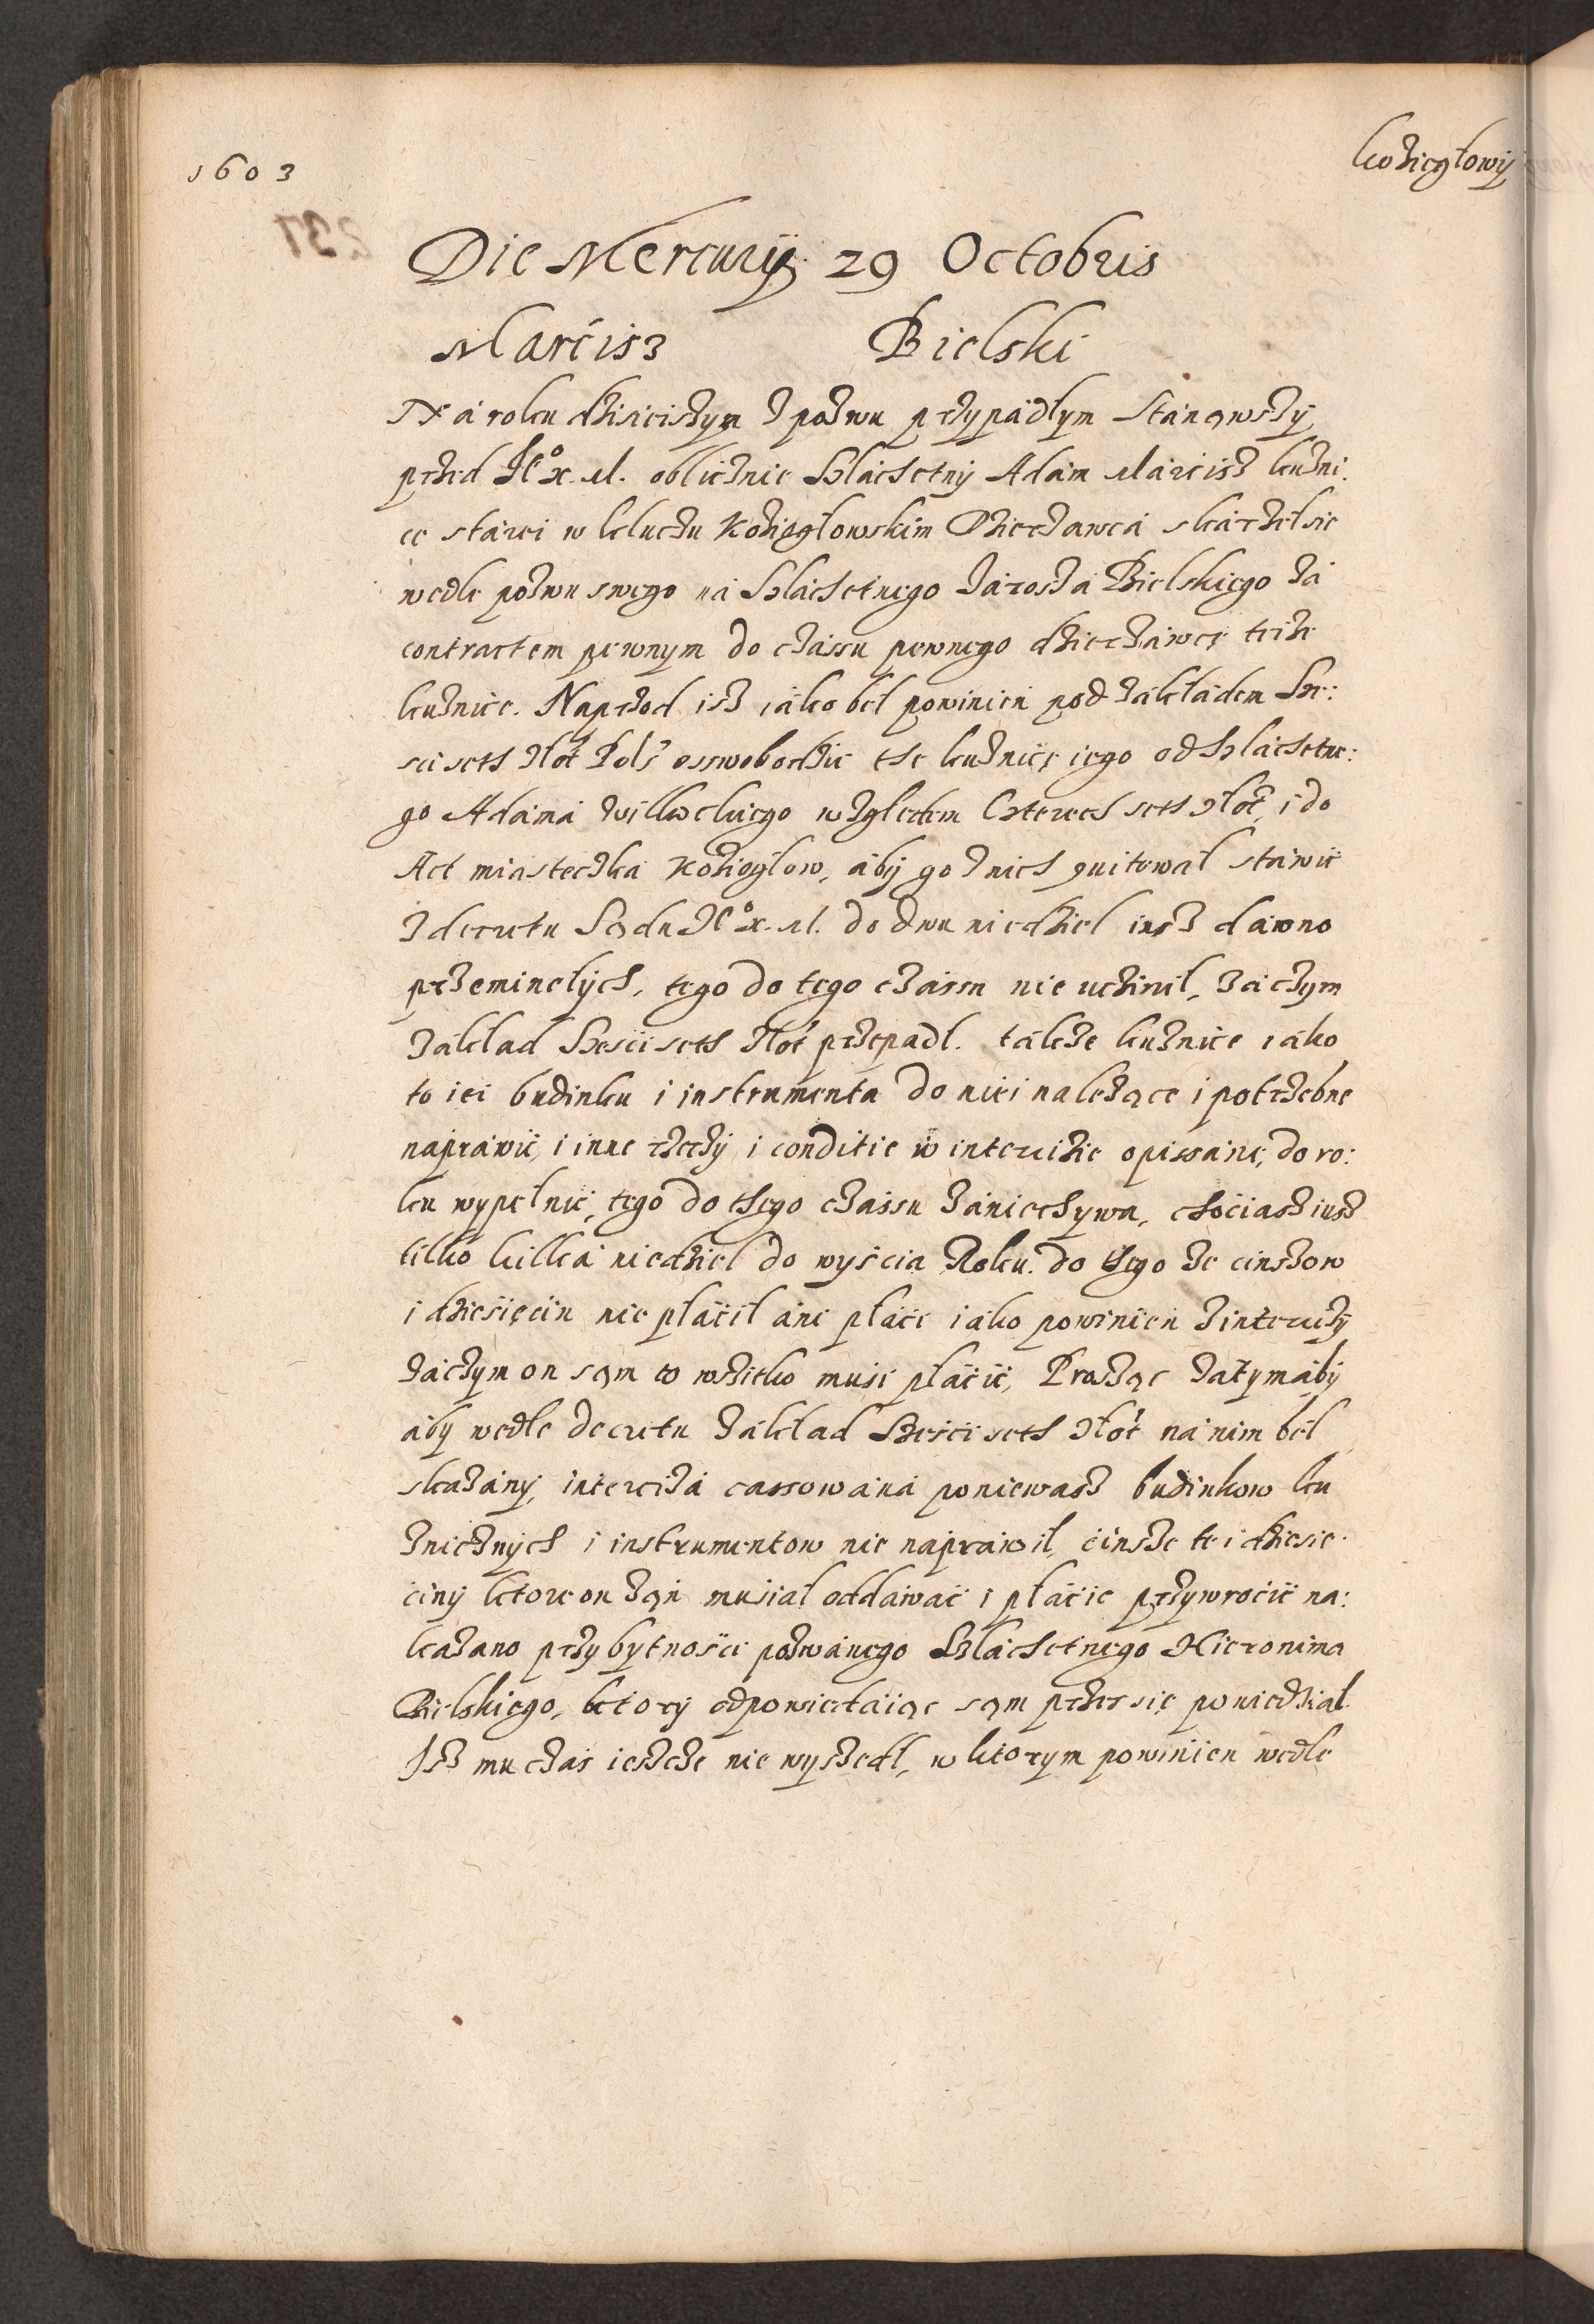 1603
koziegłowÿ
Die Mercurÿ 29 Octobris
Marcisz Bielski
Na roku dzisieiszym z pozwu przypadłym Stanąwszÿ
przed Je° x. M. oblicznie Szlachetnÿ Adam Marcisz kuzni:
ce starei w kluczu Koziegłowskim Dzierzawca skarzel sie
wedle pozwu swego na Szlachetnego Jarosza Bielskiego za
contractem pewnym do czassu pewnego dzierzawcę teize
kuznice. Naprzod isz iako bel powinien pod zakładem Sze:
sci seth złot Pols oswobodzic the kuznicę iego od szlachetne:
go Adama względem Czterech seth złot, i do
Act miasteczka Koziegłow, abÿ go z nich quitował stawic
z decretu Sądu Je° x. M. do dwu niedziel iusz dawno
przeminelÿch, tego do tego czassu nie uczinil, zaczym
zakład Szesci seth złot przepadl. takze kuznice iako
to iei budinku i instrumenta do niei nalezące i potrzebne
naprawic, i inne rzeczÿ i conditie w intercizie opissane, do ro:
ku wypełnic, tego do thego czassu zaniechywa, chociasz iusz
tilko kilka niedziel do wyscia Roku. do thego ze cinszow
i dziesięcin nie płacil ani płaci iako powinien z intercizÿ
zaczym on sąm to wszitko musi płacic, Prosząc zatym abÿ
aby wedle decretu zakład Szesci seth złot na nim bel
skazanÿ, interciza cassowana poniewasz budinkow ku
znicznÿch i instrumentow nie naprawil, cinsze te i dziesie:
cinÿ ktore on zań musial oddawac i płacic przywrocic na:
kazano przy bytnosci pozwanego Szlachetnego Hieronima
Bielskiego, ktory odpowiedaiąc sąm przez się powiedzial
Isz mu czas ieszcze nie wyszedl, w ktorym powinien wedle